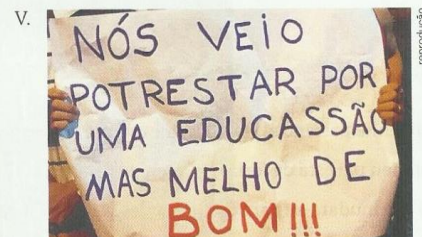 V.
NÓS VEIO
POTRESTAR POR
UMA EDUCASSÃO
MAS MELHO DE
BOM!!!
reprodução